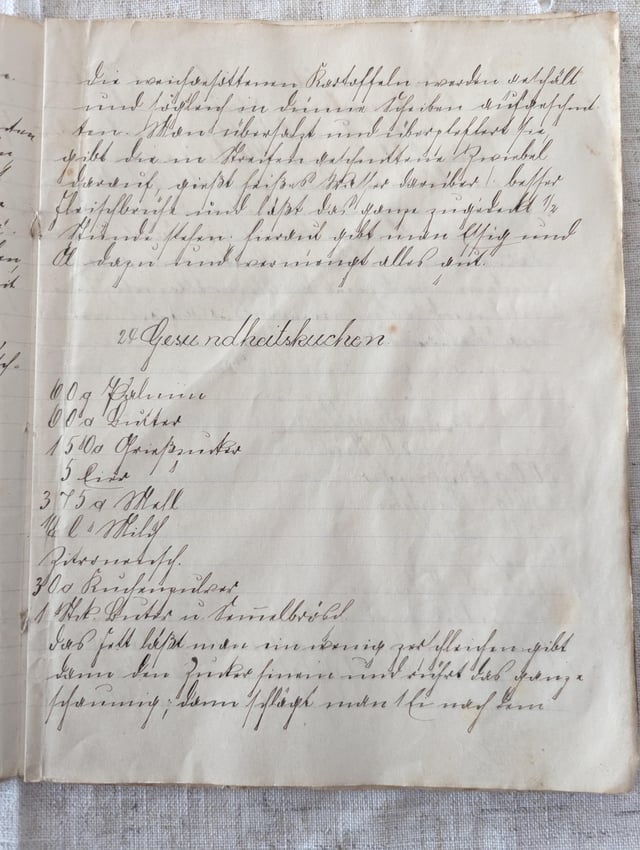 die weichgesottenen Kartoffeln werden geschält
und sogleich in dünne Scheiben aufgeschnit
ten. Man übersalzt und überpfeffert sie,
gibt die in Streifen geschnittene Zwiebel
darauf, gießt heißes Wasser darüber besser
Fleischbrühe und läßt das ganze zugedeckt 1/2
Stunde stehen. hierauf gibt man Essig und
Öl dazu und vermengt alles gut.
24 Gesundheitskuchen
60 g Palmin
60 g Butter
150 g Grießzucker
5 Eier
375 g Mehl
1/4 l Milch
Zitronensch.
30 g Kuchenpulver
1 Stck. Butter u Semmelbrösel
das Fett läßt man ein wenig zerschleichen gibt
dann den Zucker hinein und rührt das ganze
schaumig; dann schlägt man 1 Ei nach dem